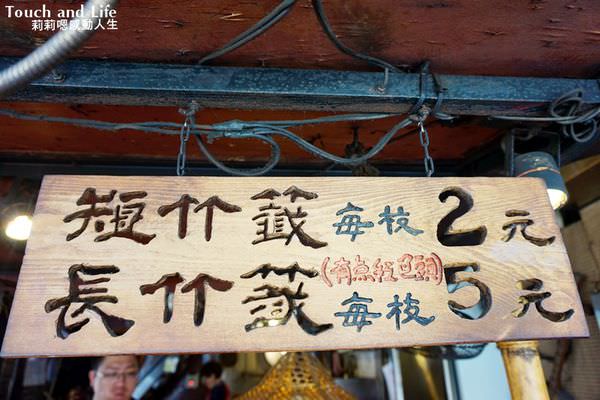 Touch and Life
莉莉嗯感動人生
短竹籤每枝2元
(有点紅包頭)
長竹籤每枝5元